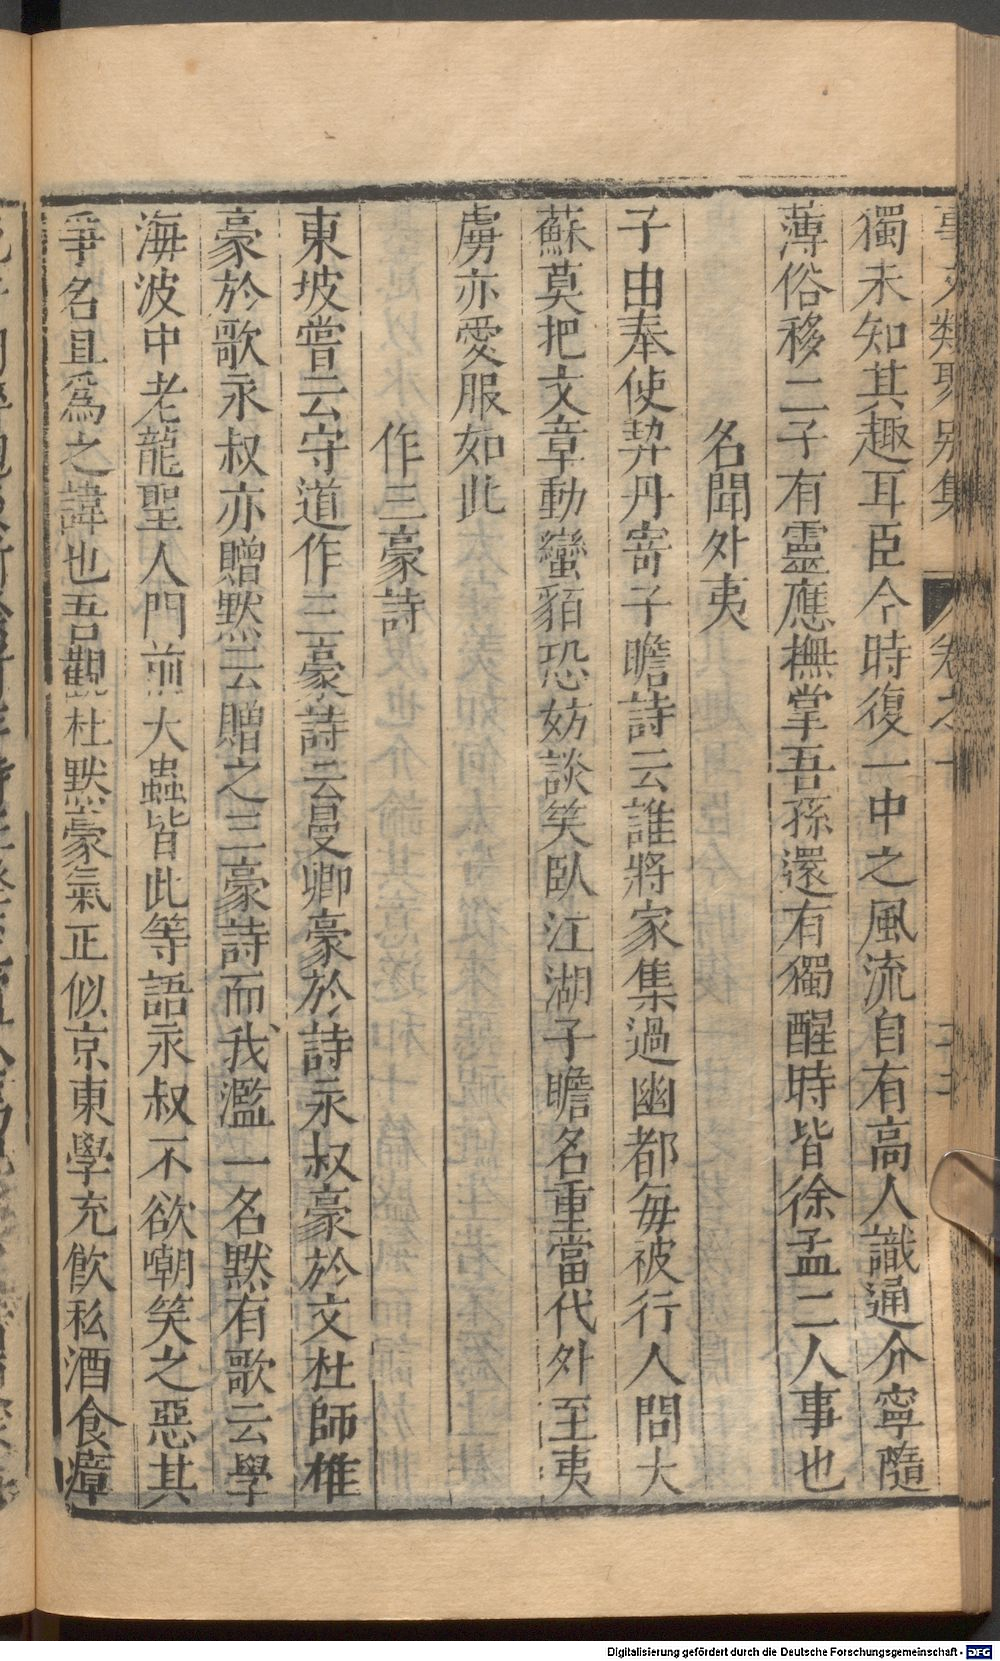 事文類聚別集 卷之十
獨未知其趣耳臣今時復一中之風流自有高人識通介寧隨
薄俗移二子有靈應撫掌吾孫還有獨醒時皆徐孟二人事也
名聞外夷
子由奉使契丹寄子瞻詩云誰將家集過幽都每被行人問大
蘇莫把文章動蠻貊恐妨談笑臥江湖子瞻名重當代外至夷
虜亦愛服如此
作三豪詩
東坡嘗云守道作三豪詩云曼卿豪於詩永叔豪於文杜師雄
豪於歌永叔亦贈默云贈之三豪詩而我濫一名默有歌云學
海波中老龍聖人門前大蟲皆此等語永叔不欲嘲笑之惡其
爭名且爲之諱也吾觀杜默豪氣正似京東學充飲私酒食瘴
Digitalisierung gefördert durch die Deutsche Forschungsgemeinschaft - DFG